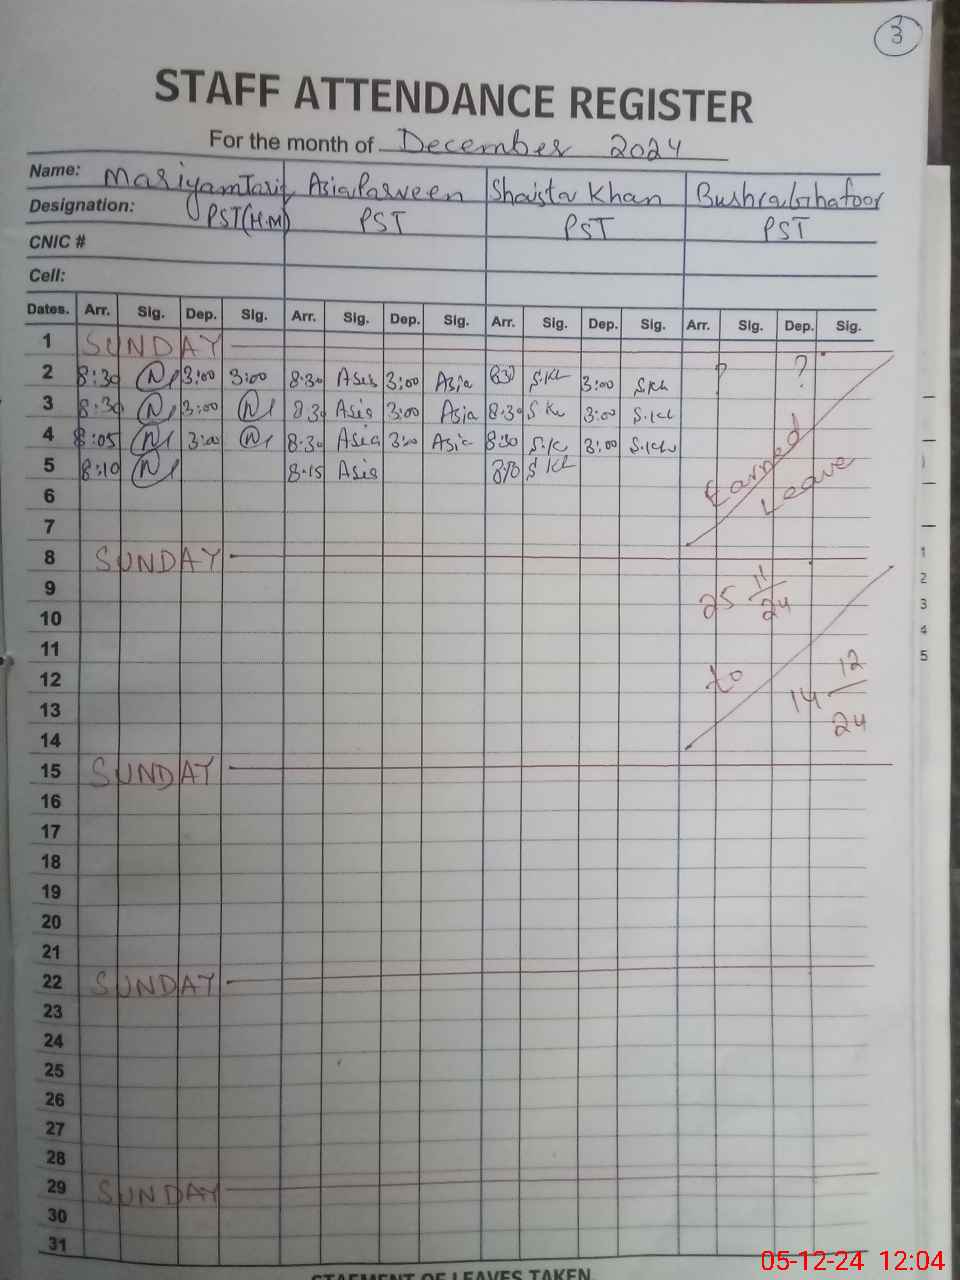 3
STAFF ATTENDANCE REGISTER
For the month of December 2024
Name: Mariyam Tariq Asia Parveen Shaista Khan Bushra Ghafoor
Designation: PST(H.M) PST PST PST
CNIC #
Cell:
Dates. Arr. Sig. Dep. Sig. Arr. Sig. Dep. Sig. Arr. Sig. Dep. Sig. Arr. Sig. Dep. Sig.
1 SUNDAY
2 8:30 3:00 3:00 8:30 Asia 3:00 Asia 830 S.Kh 3:00 S.Kh ? ?
3 8:30 3:00 8:30 Asia 3:00 Asia 8:30 S Kh 3:00 S.Kh
4 8:05 3:00 8:30 Asia 3:00 Asia 8:30 S.K 3:00 S.Kh Earned
5 8:10 8:15 Asia 8:10 S Kh Leave
6
7
8 SUNDAY
9 25 11/24
10
11
12 to 12
13 14 24
14
15 SUNDAY
16
17
18
19
20
21
22 SUNDAY
23
24
25
26
27
28
29 SUNDAY
30
31
1
2
3
4
5
05-12-24 12:04